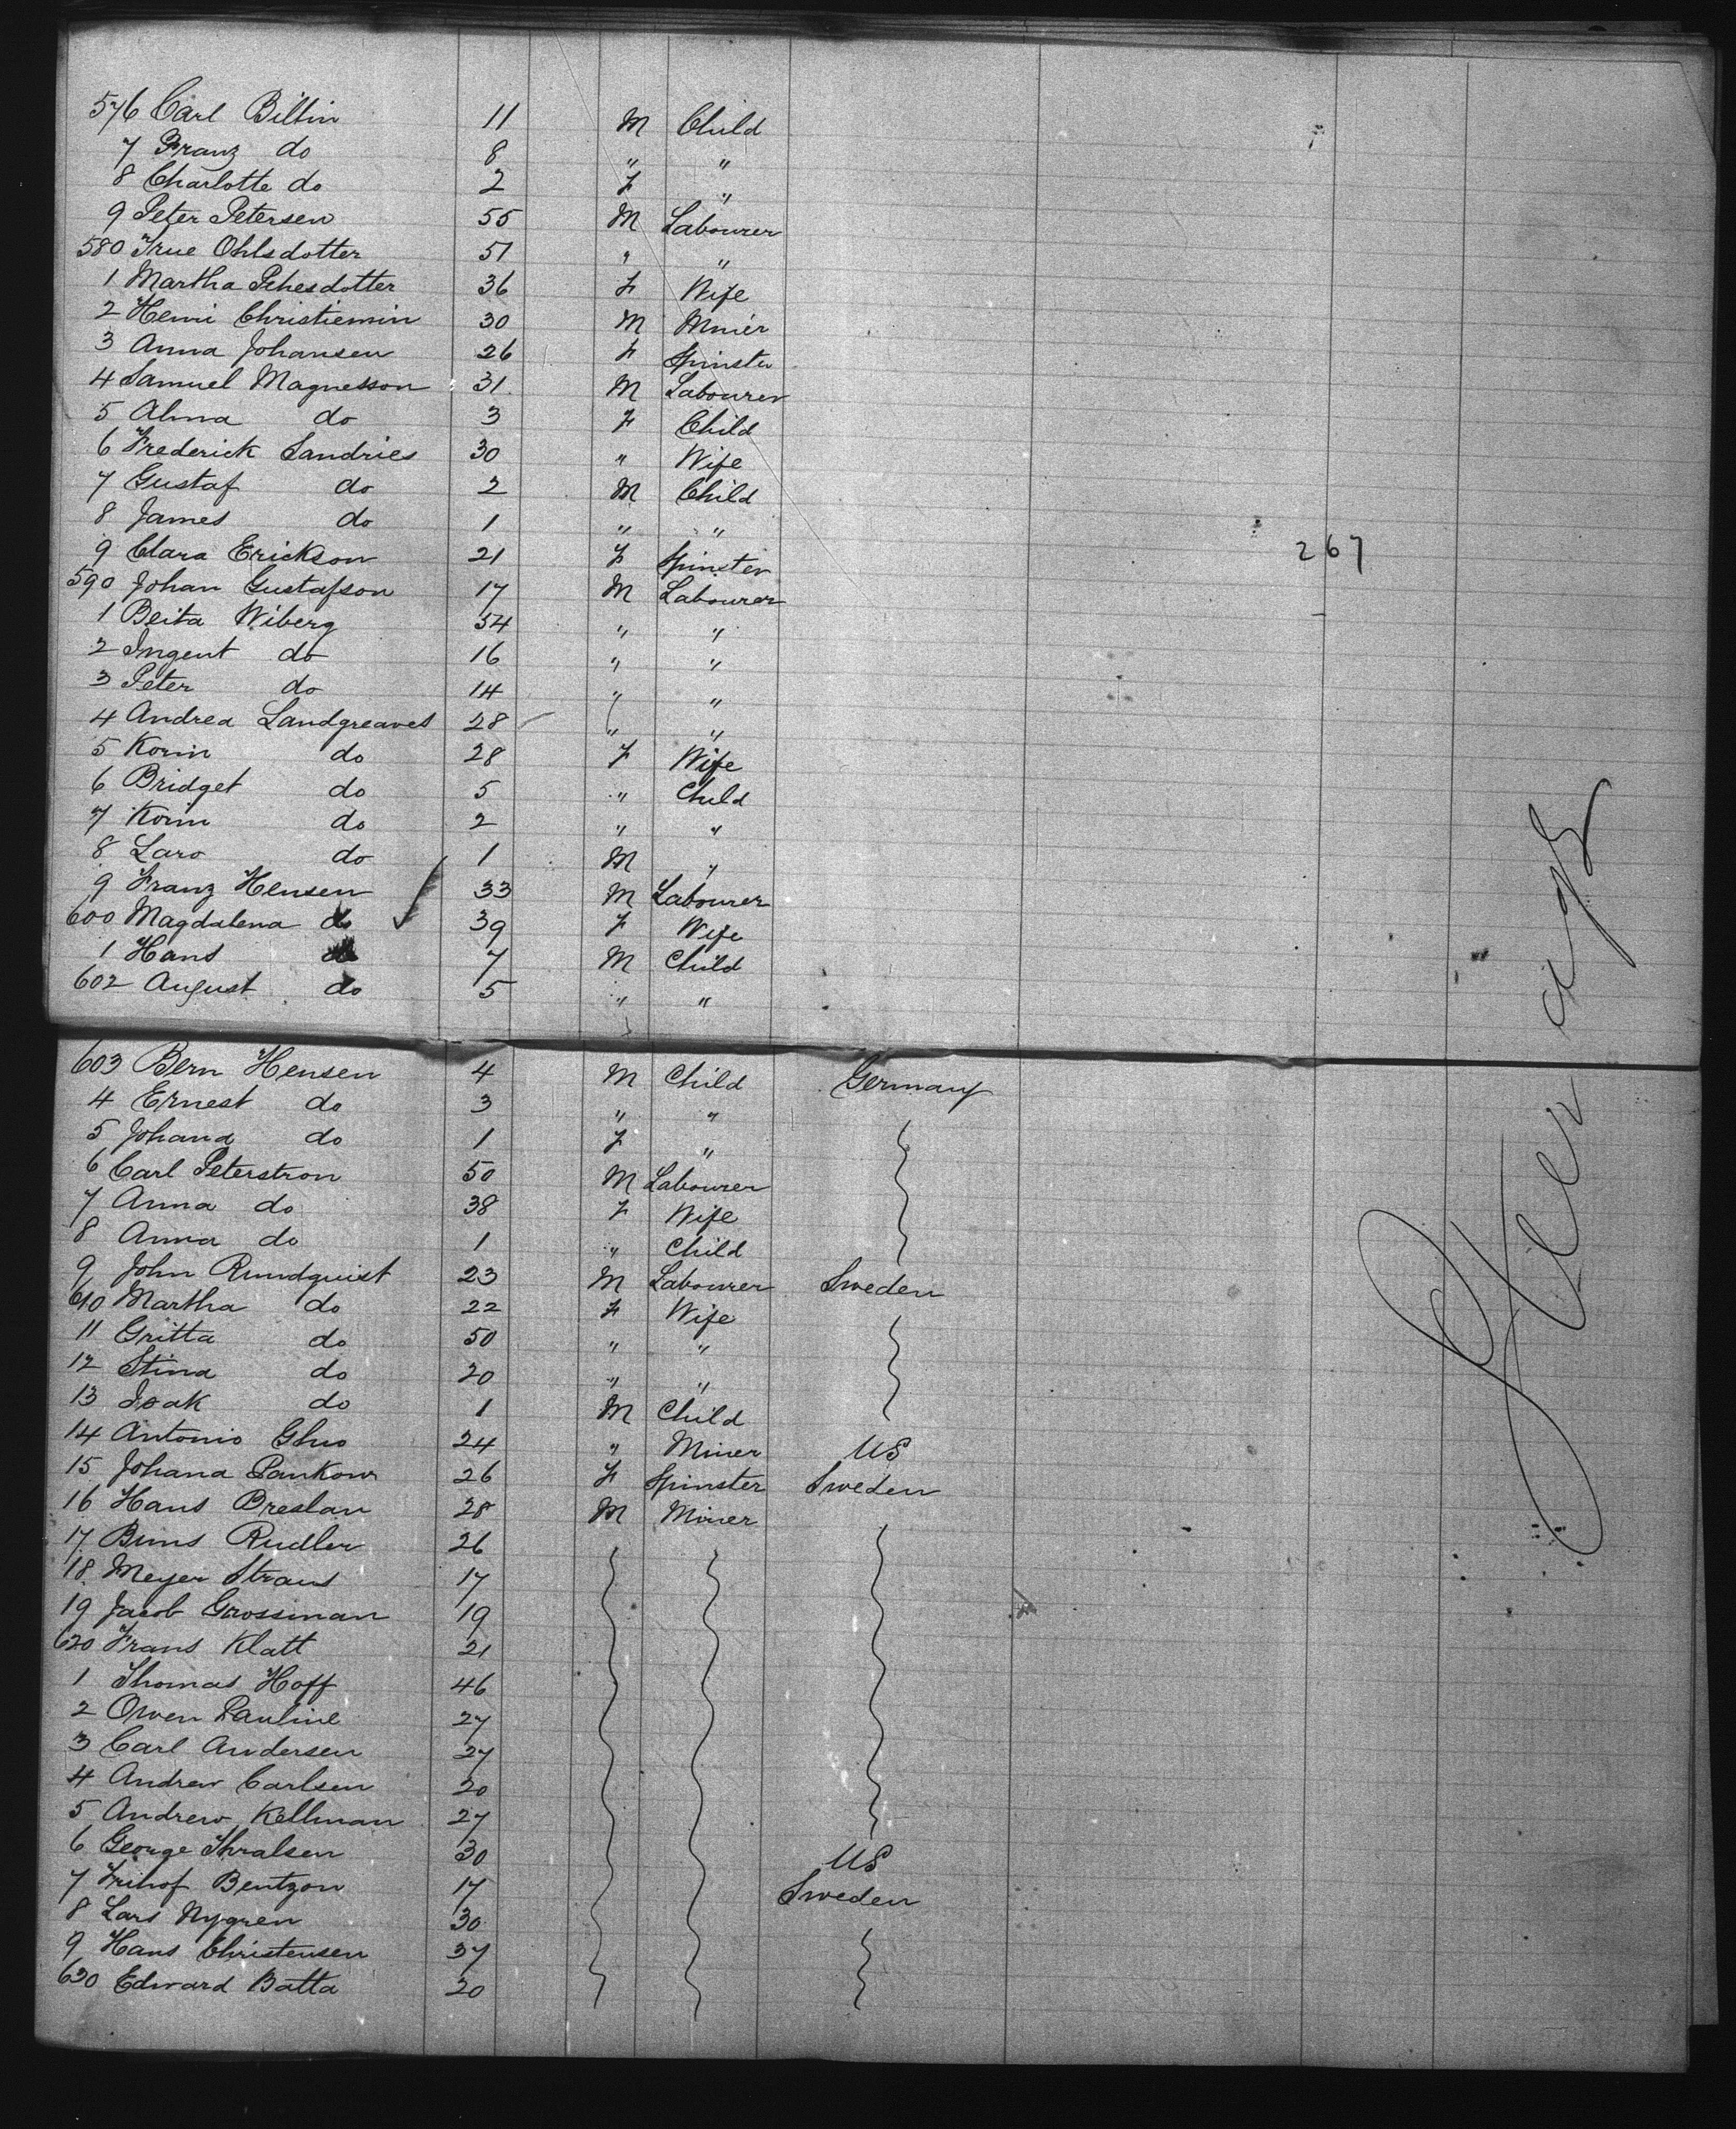 576 Carl Biltin 11 M Child
7 Franz do 8 " "
8 Charlotte do 2 F "
9 Peter Petersen 55 M Labourer
580 True Ohlsdotter 51 " "
1 Martha 36 F Wife
2 Henri Christiemin 30 M Miner
3 Anna Johansen 26 F Spinster
4 Samuel Magnesson 31 M Labourer
5 Alma do 3 F Child
6 Frederick Sandries 30 " Wife
7 Gustaf do 2 M Child
8 James do 1 " "
9 Clara Erickson 21 F Spinster
267
590 Johan Gustafson 17 M Labourer
1 Beita Wiberg 54 " "
2 Ingent do 16 " "
3 Peter do 14 " "
4 Andrea Landgreaves 28 " "
5 Korin do 28 F Wife
6 Bridget do 5 " Child
7 Korin do 2 " "
8 Lars do 1 M "
9 Franz Hensen 33 M Labourer
600 Magdalena do 39 F Wife
1 Hans do 7 M Child
602 August do 5 " "
603 Bern Hensen 4 M Child Germany
4 Ernest do 3 " "
5 Johana do 1 F "
6 Carl Peterstron 50 M Labourer
7 Anna do 38 F Wife
8 Anna do 1 " Child
9 John Rundquist 23 M Labourer Sweden
610 Martha do 22 F Wife
11 Gritta do 50 " "
12 Stina do 20 " "
13 Isak do 1 M Child
14 Antonio Ghio 24 " Miner US
15 Johana Pankow 26 F Spinster Sweden
16 Hans Breslau 28 M Miner
17 Buns Rudler 26
18 Meyer Straus 17
19 Jacob Grossman 19
620 Frans Klatt 21
1 Thomas Hoff 46
2 Owen Pauline 27
3 Carl Andersen 27
4 Andrew Carlsen 20
5 Andrew Kellman 27
6 George Thralsen 30 US
7 Frihof Bentzon 17 Sweden
8 Lars Nygren 30
9 Hans Christensen 37
630 Edward Batta 20